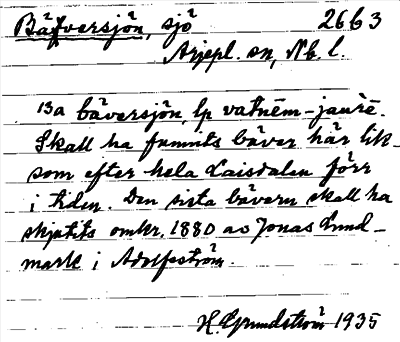 Bäfversjön, sjö 26 b 3
Arjepl. sn, Nb. l.
13a bäversjön, lp vatnēm-jaurē.
Skall ha funnits bäver här lik-
som efter hela Laisdalen förr
i tiden. Den sista bävern skall ha
skjutits omkr. 1880 av Jonas Lund-
mark i Adolfström.
H. Grundström 1935